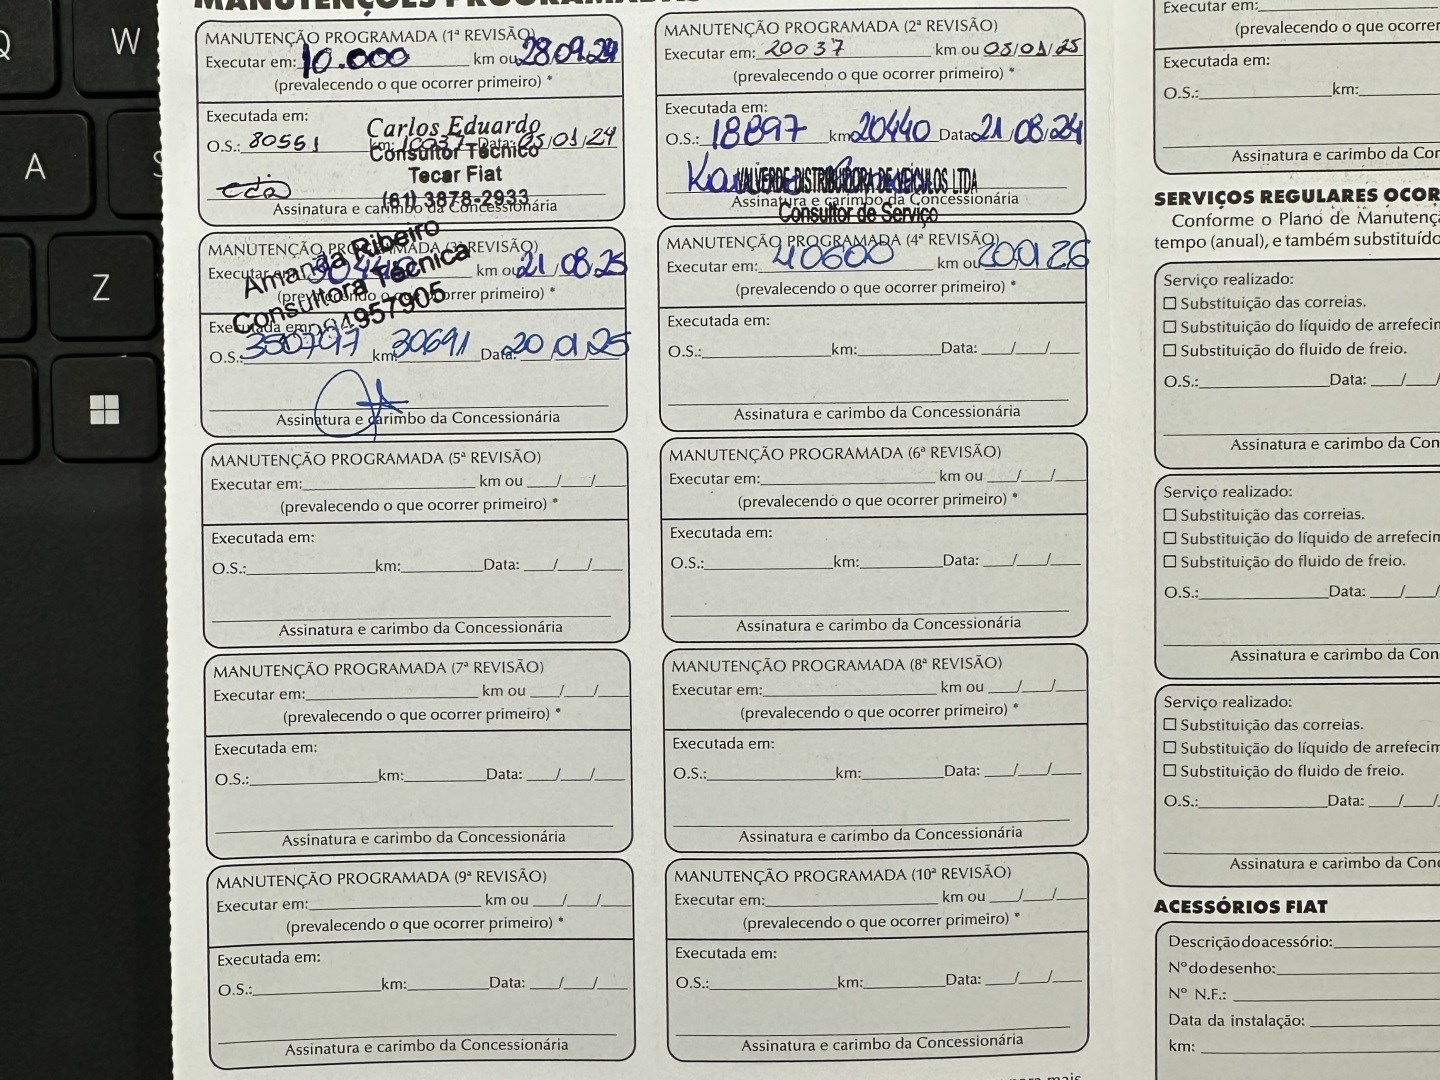 MANUTENÇÕES PROGRAMADAS
MANUTENÇÃO PROGRAMADA (1ª REVISÃO)
Executar em: 10.000 km ou 28.09.24
(prevalecendo o que ocorrer primeiro) *
Executada em:
O.S.: 80551 km: 10037 Data: 05/01/24
Carlos Eduardo
Consultor Técnico
Tecar Fiat
(61) 3878-2933
Assinatura e carimbo da Concessionária
MANUTENÇÃO PROGRAMADA (2ª REVISÃO)
Executar em: 20037 km ou 05/01/25
(prevalecendo o que ocorrer primeiro) *
Executada em:
O.S.: 18897 km 20440 Data: 21/08/24
VALVERDE DISTRIBUIDORA DE VEÍCULOS LTDA
Assinatura e carimbo da Concessionária
Consultor de Serviço
MANUTENÇÃO PROGRAMADA (3ª REVISÃO)
Executar em: 30440 km ou 21/08/25
(prevalecendo o que ocorrer primeiro) *
Amanda Ribeiro
Consultora Técnica
Executada em:
O.S.: 350797 km: 30691 Data: 20/01/25
Assinatura e carimbo da Concessionária
MANUTENÇÃO PROGRAMADA (4ª REVISÃO)
Executar em: 40600 km ou 20 01 26
(prevalecendo o que ocorrer primeiro) *
Executada em:
O.S.: km: Data: / /
Assinatura e carimbo da Concessionária
MANUTENÇÃO PROGRAMADA (5ª REVISÃO)
Executar em: km ou / /
(prevalecendo o que ocorrer primeiro) *
Executada em:
O.S.: km: Data: / /
Assinatura e carimbo da Concessionária
MANUTENÇÃO PROGRAMADA (6ª REVISÃO)
Executar em: km ou / /
(prevalecendo o que ocorrer primeiro) *
Executada em:
O.S.: km: Data: / /
Assinatura e carimbo da Concessionária
MANUTENÇÃO PROGRAMADA (7ª REVISÃO)
Executar em: km ou / /
(prevalecendo o que ocorrer primeiro) *
Executada em:
O.S.: km: Data: / /
Assinatura e carimbo da Concessionária
MANUTENÇÃO PROGRAMADA (8ª REVISÃO)
Executar em: km ou / /
(prevalecendo o que ocorrer primeiro) *
Executada em:
O.S.: km: Data: / /
Assinatura e carimbo da Concessionária
MANUTENÇÃO PROGRAMADA (9ª REVISÃO)
Executar em: km ou / /
(prevalecendo o que ocorrer primeiro) *
Executada em:
O.S.: km: Data: / /
Assinatura e carimbo da Concessionária
MANUTENÇÃO PROGRAMADA (10ª REVISÃO)
Executar em: km ou / /
(prevalecendo o que ocorrer primeiro) *
Executada em:
O.S.: km: Data: / /
Assinatura e carimbo da Concessionária
Executar em:
(prevalecendo o que ocorrer
Executada em:
O.S.: km:
Assinatura e carimbo da Con
SERVIÇOS REGULARES OCOR
Conforme o Plano de Manutenç
tempo (anual), e também substituído
Serviço realizado:
Substituição das correias.
Substituição do líquido de arrefecim
Substituição do fluido de freio.
O.S.: Data: / /
Assinatura e carimbo da Con
Serviço realizado:
Substituição das correias.
Substituição do líquido de arrefecim
Substituição do fluido de freio.
O.S.: Data: / /
Assinatura e carimbo da Con
Serviço realizado:
Substituição das correias.
Substituição do líquido de arrefecim
Substituição do fluido de freio.
O.S.: Data: / /
Assinatura e carimbo da Con
ACESSÓRIOS FIAT
Descrição do acessório:
Nº do desenho:
Nº N.F.:
Data da instalação:
km:
Q
W
A
S
Z